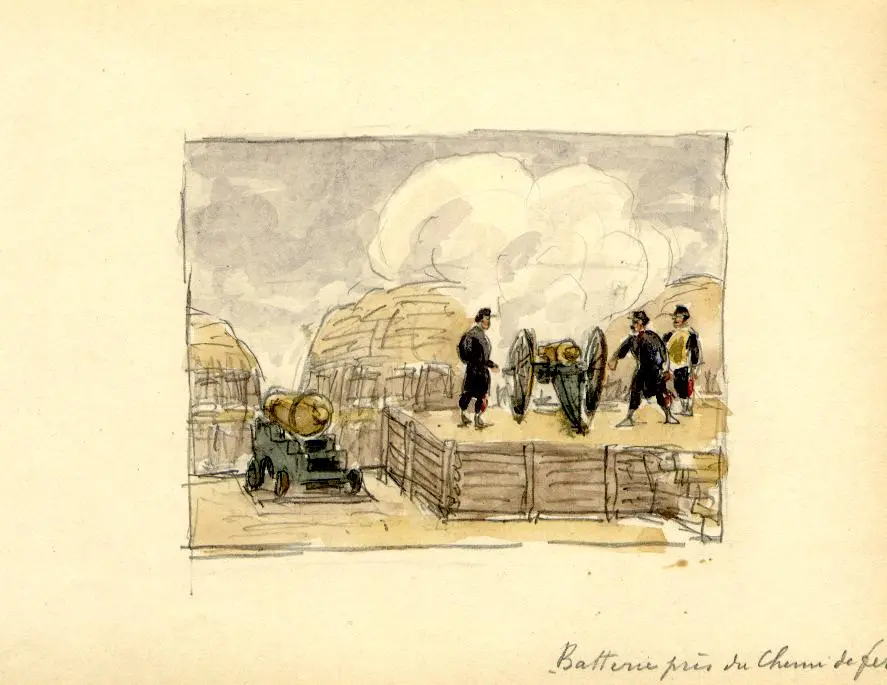 Batterie près du Chemi de fer